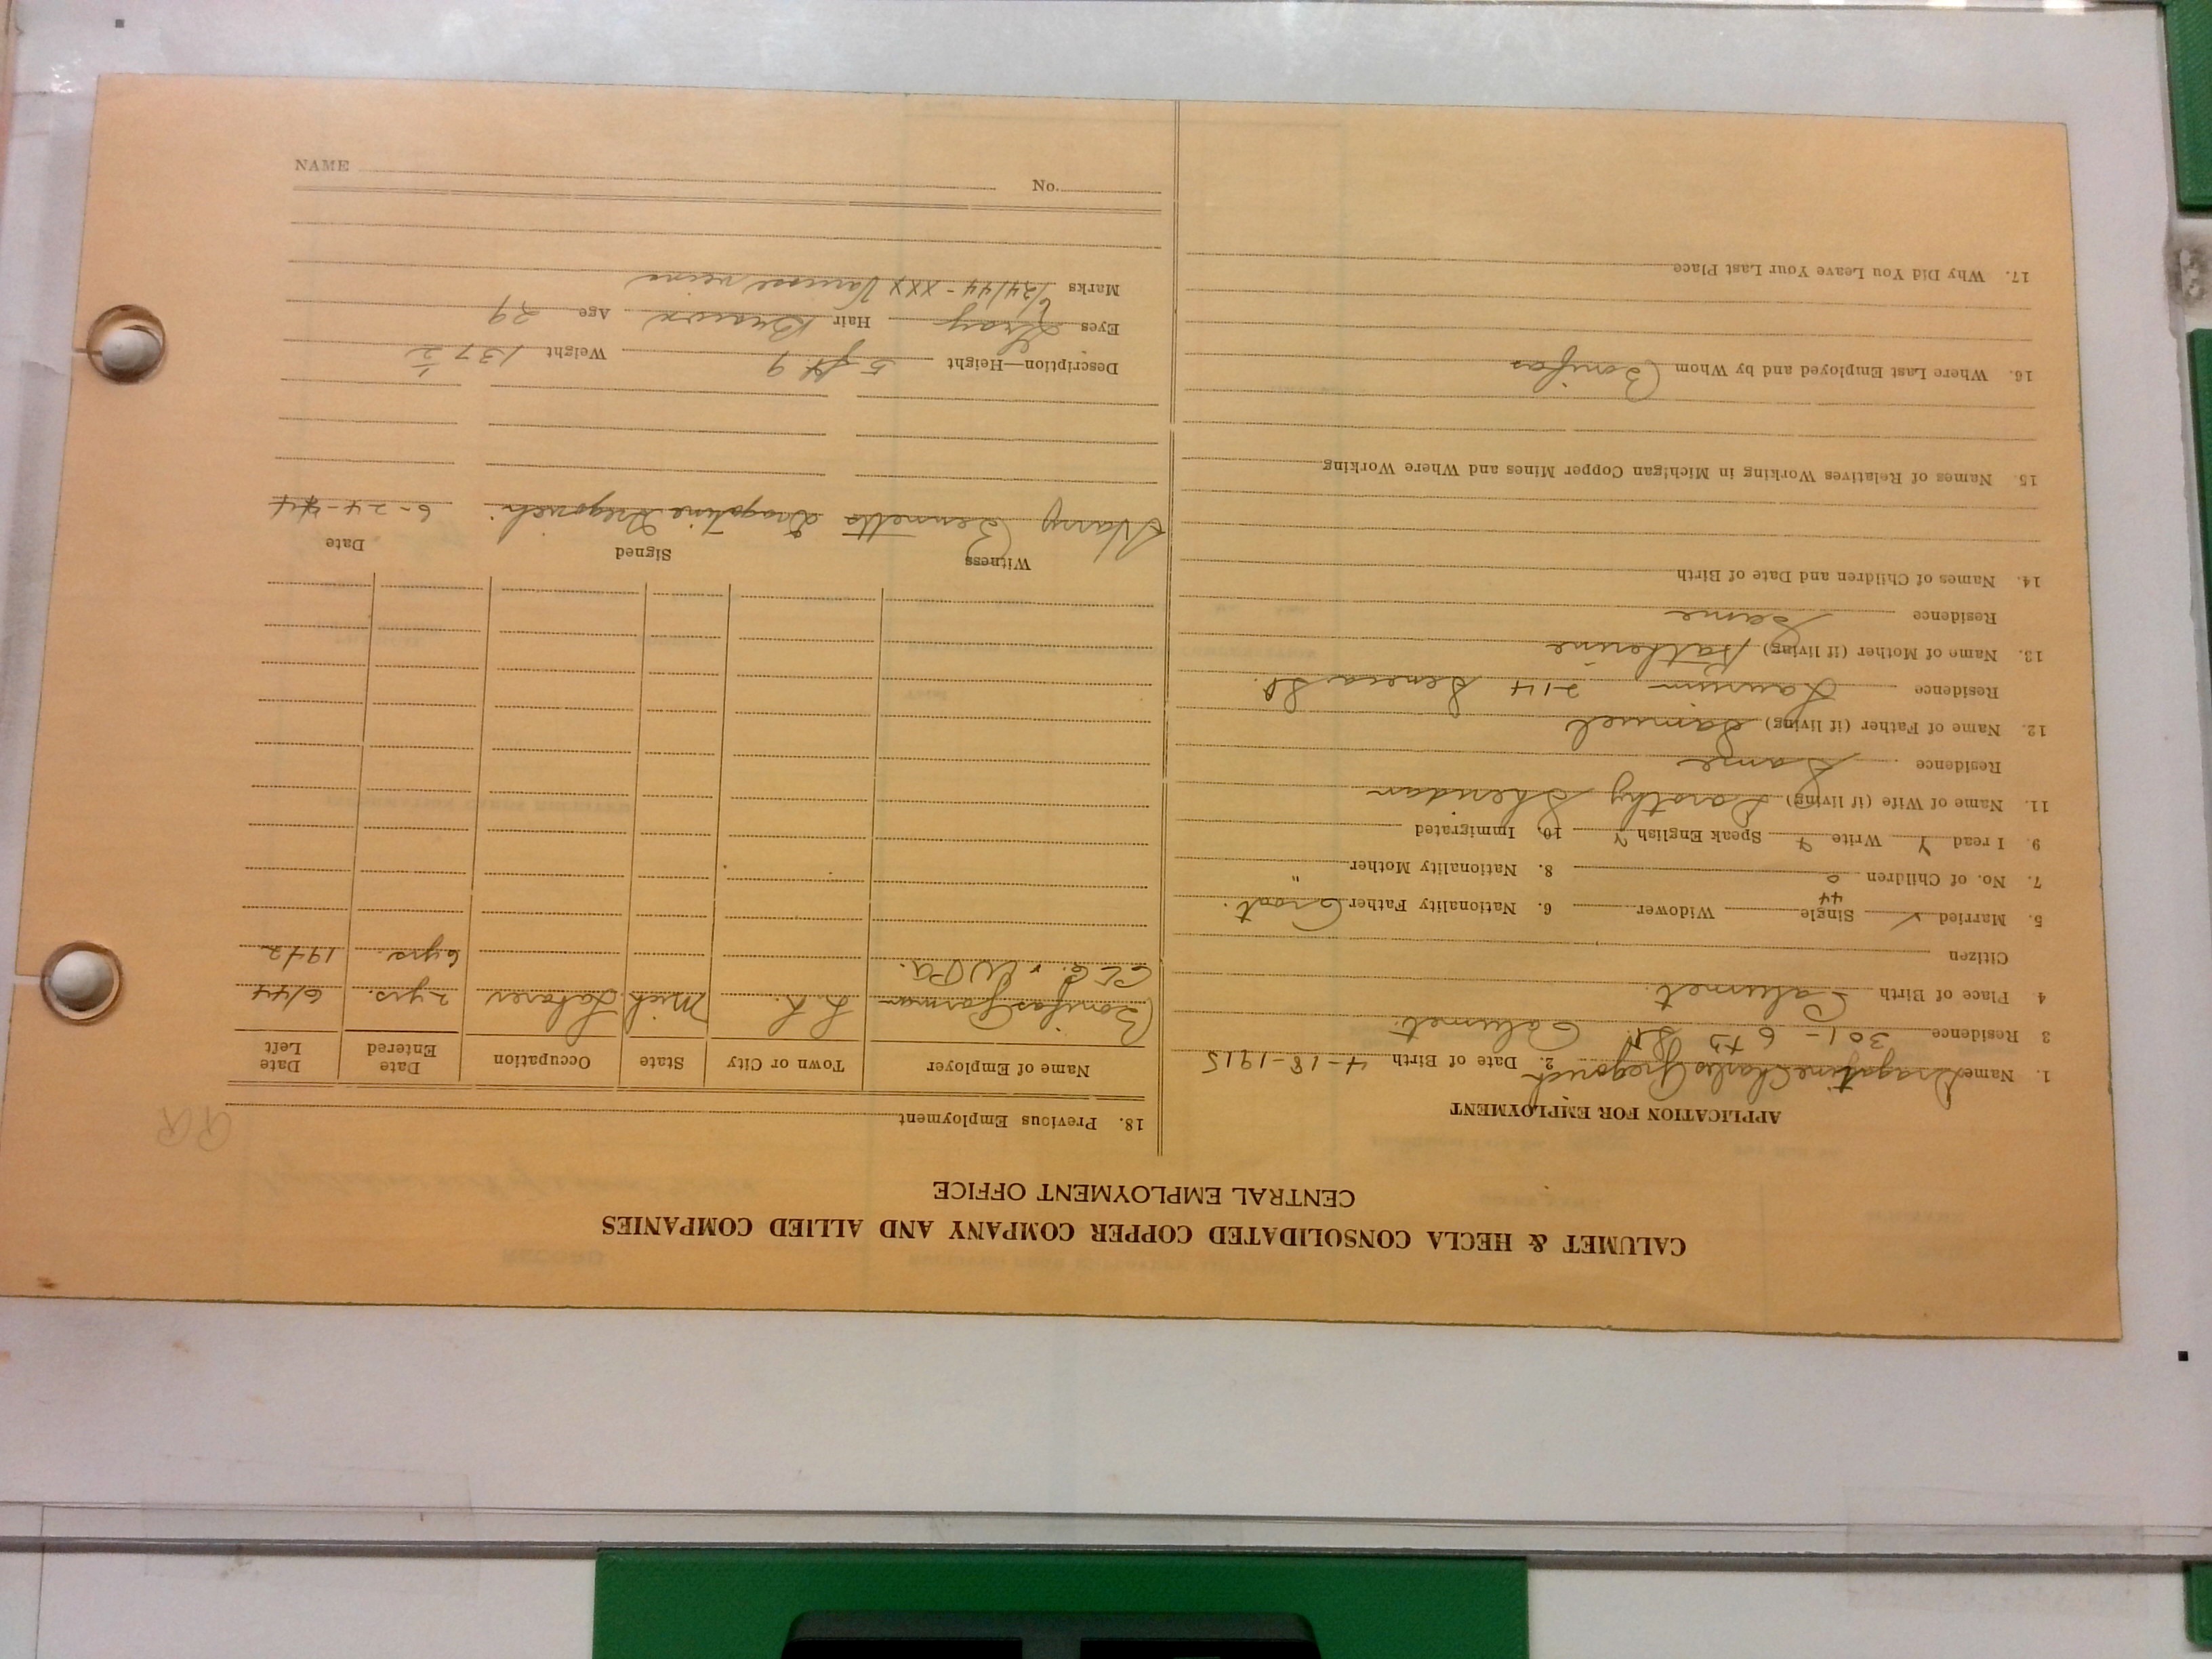 CALUMET & HECLA CONSOLIDATED COPPER COMPANY AND ALLIED COMPANIES
CENTRAL EMPLOYMENT OFFICE
APPLICATION FOR EMPLOYMENT
1. Name Dragotine Charles Gregorich 2. Date of Birth 4-18-1915
3 Residence 301-6th St. Calumet
4 Place of Birth Calumet
Citizen
5. Married ✓ Single Widower 6. Nationality Father Croat.
44
7. No. of Children 0 8. Nationality Mother "
9. I read Y Write Y Speak English Y 10. Immigrated
11. Name of Wife (if living) Dorothy
Residence Same
12. Name of Father (if living) Samuel
Residence Laurium 214 Seneca St.
13. Name of Mother (if living) Katherine
Residence Same
14. Names of Children and Date of Birth
15. Names of Relatives Working in Michigan Copper Mines and Where Working
16. Where Last Employed and by Whom Bonifas
17. Why Did You Leave Your Last Place
18. Previous Employment
Name of Employer Town or City State Occupation Date Entered Date Left
Bonifas Gorman L.L. Mich Laborer 2 yrs. 6/44
CCC & WPA. 6 yrs. 1942
Witness Signed Date
Harry Bennetts Dragotine Gregorich 6-24-44
Description—Height 5 ft. 9 Weight 137 1/2
Eyes Gray Hair Brown Age 29
Marks 6/24/44 - XXX Varicose veins
NAME No.